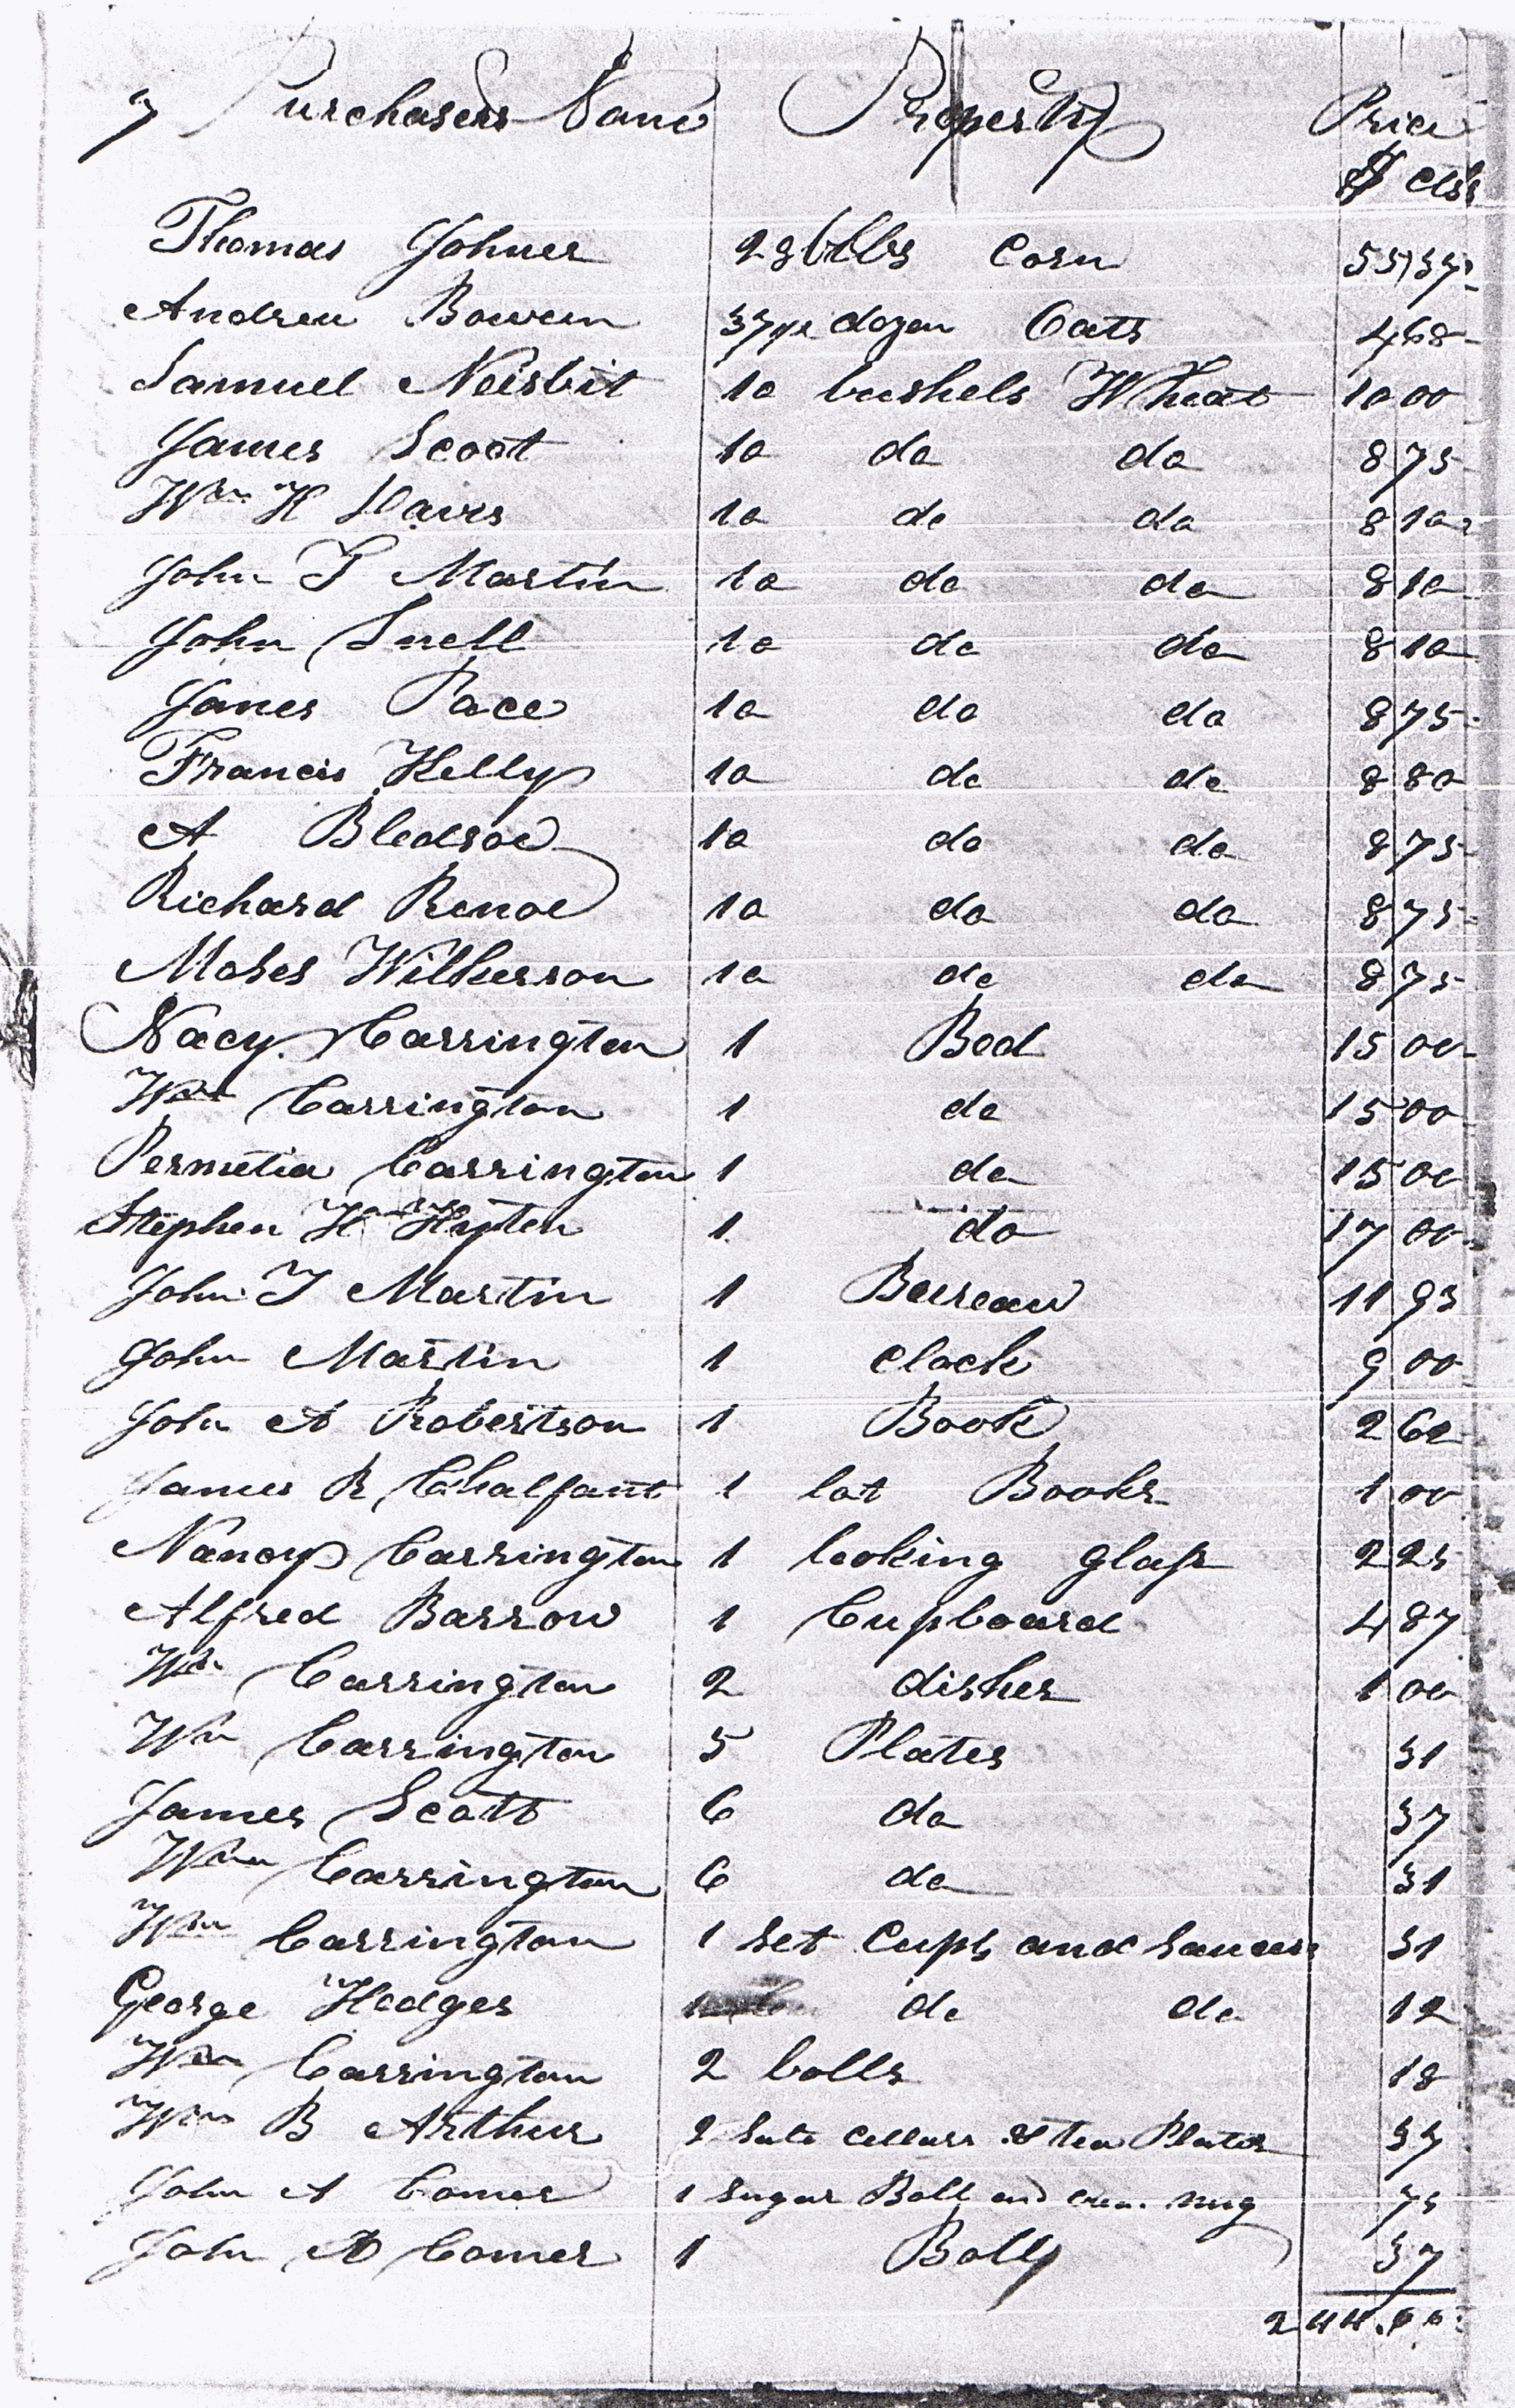 7 Purchasers Name Property Price
$ cts
Thomas Johner 23 bbls Corn 55 37
Andrew Bowen 37 1/2 dozen Oats 4 68
Samuel Neisbit 10 bushels Wheat 10 00
James Scoot 10 do do 8 75
Wm H Davis 10 do do 8 10
John T Martin 10 do do 8 10
John Snell 10 do do 8 10
James Pace 10 do do 8 75
Francis Kelly 10 do do 8 80
A Bledsoe 10 do do 8 75
Richard Renoe 10 do do 8 75
Moses Wilkerson 10 do do 8 75
Nacy Carrington 1 Bed 15 00
Wm Carrington 1 do 15 00
Permetia Carrington 1 do 15 00
Stephen H Hyten 1 do 17 00
John T Martin 1 Berreau 11 93
John Martin 1 clock 9 00
John A Robertson 1 Book 2 62
James R Chalfant 1 lot Books 1 00
Nancy Carrington 1 looking glass 2 25
Alfred Barrow 1 Cupboard 4 87
Wm Carrington 2 dishes 1 00
Wm Carrington 5 Plates 31
James Scott 6 do 37
Wm Carrington 6 do 31
Wm Carrington 1 set Cups and saucers 31
George Hedges 1 do do 12
Wm Carrington 2 bolls 18
Wm B Arthur 2 Salt Cellars & tea Plates 37
John A Comer 1 Sugar Boll and cream mug 75
John A Comer 1 Boll 37
244.66